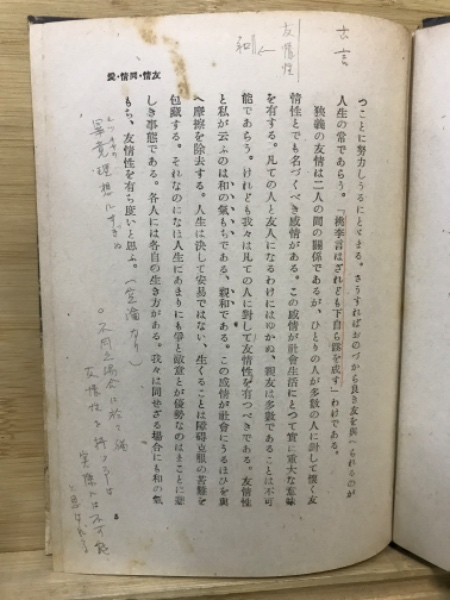 古言
友情性
和
友情・同情・愛
つことに努力しうるにとどまる。さうすればおのづから良き友を與へられるのが
人生の常であらう。「桃李言はざれども下自ら蹊を成す」わけである。
狹義の友情は二人の間の關係であるが、ひとりの人が多數の人に對して懷く友
情性とでも名づくべき感情がある。この感情が社會生活にとつて實に重大な意味
を有する。凡ての人と友人になるわけにはゆかぬ、親友は多數であることは不可
能であらう。けれども我々は凡ての人に對して友情性を有つべきである。友情性
と私が云ふのは和の氣もちである、親和である。この感情が社會にうるほひを與
へ摩擦を除去する。人生は決して安易ではない、生くることは障碍克服の苦難を
包藏する。それなのになほ人生にあまりにも爭と敵意とが優勢なのはまことに悲
しき事態である。各人には各自の生き方がある。我々は同せざる場合にも和の氣
もち、友情性を有ち度いと思ふ。
(空論なり)
畢竟理想にすぎぬ
友情性を